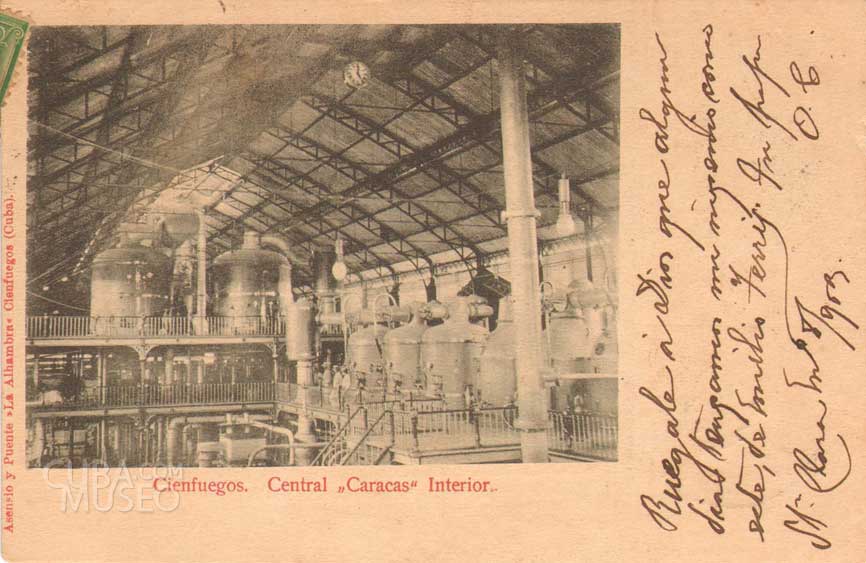 Asensio y Puente »La Alhambra« Cienfuegos (Cuba).
Cienfuegos. Central „Caracas“ Interior.
CUBA.COM
MUSEO
Ruegale a Dios que algun
dia tengamos un ingenio como
este, de Emilio Terry. Tu pepe
O. C.
Sta Clara En° 8/903